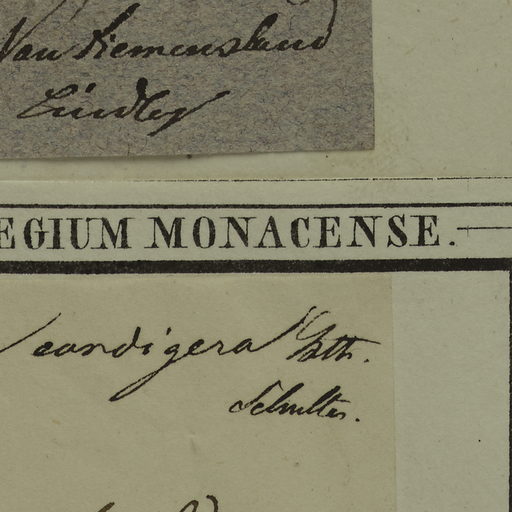 Van Diemensland
Lindley
EGIUM MONACENSE.
candigera
Schultes.